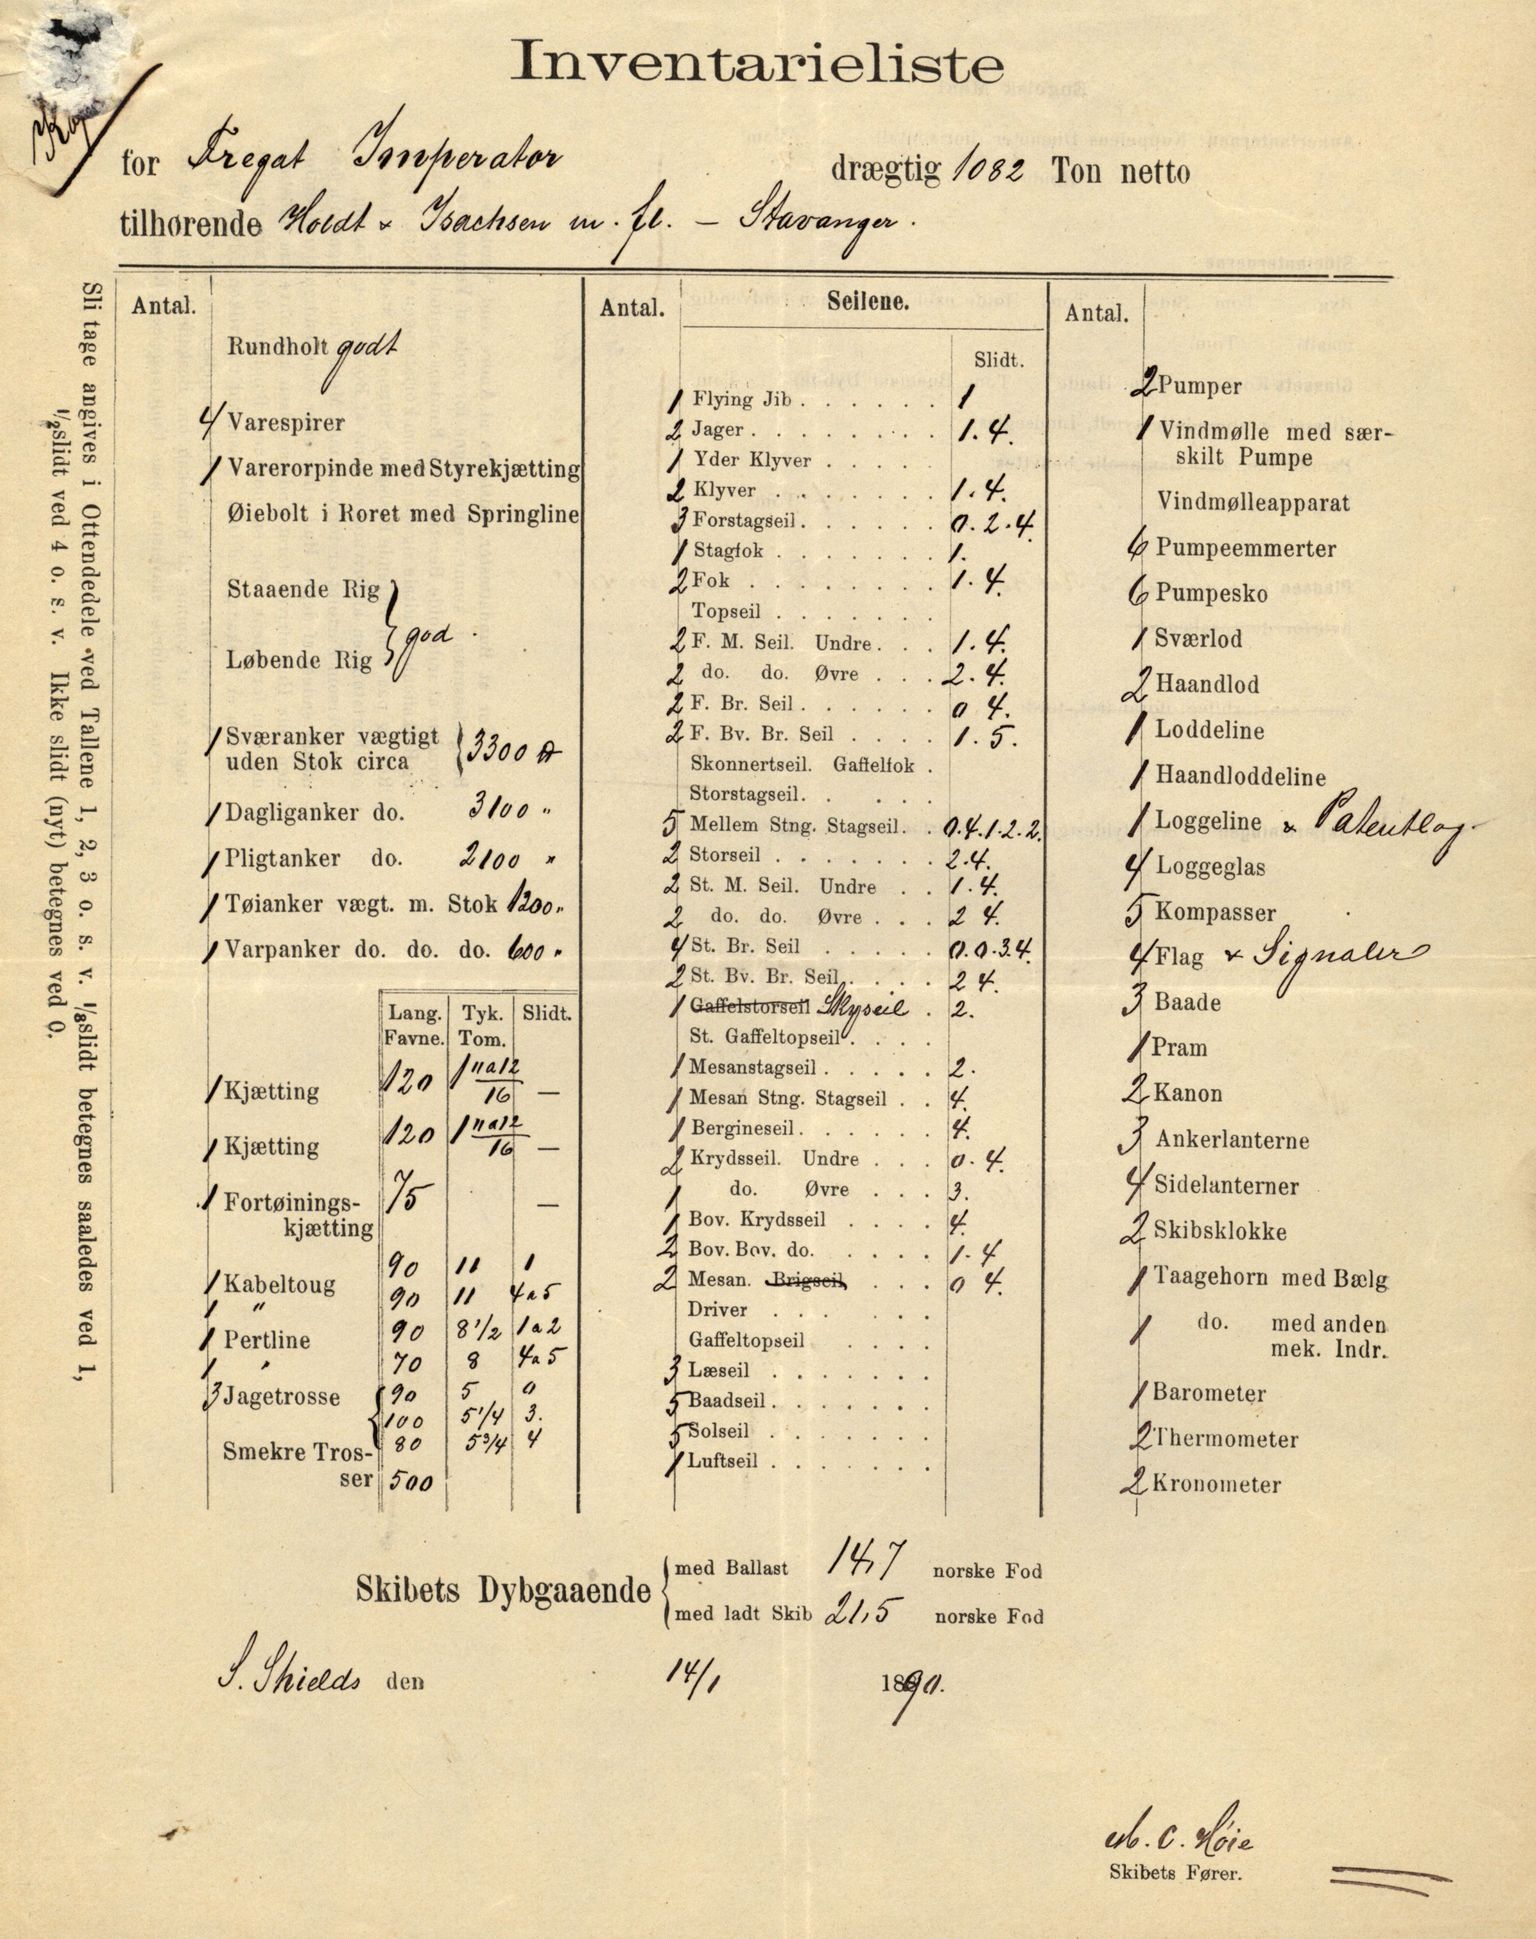 Inventarieliste
for Fregat Imperator drægtig 1082 Ton netto
tilhørende Holdt & Isachsen m. fl. — Stavanger.
Slitage angives i Ottendedele ved Tallene 1, 2, 3 o. s. v. 1/8 slidt betegnes saaledes ved 1,
1/2 slidt ved 4 o. s. v. Ikke slidt (nyt) betegnes ved 0.
Antal.
Rundholt godt
4 Varespirer
1 Varerorpinde med Styrekjætting
Øiebolt i Roret med Springline
Staaende Rig
god.
Løbende Rig
1 Sværanker vægtigt
uden Stok circa 3300 ℔
1 Dagliganker do. 3100 "
1 Pligtanker do. 2100 "
1 Tøianker vægt. m. Stok 1200 "
1 Varpanker do. do. do. 600 "
Lang. Tyk. Slidt.
Favne. Tom.
1 Kjætting 120 1 11 a 12/16 —
1 Kjætting 120 1 11 a 12/16 —
1 Fortøinings- 75 —
kjætting
90 11 1
1 Kabeltoug
1 " 90 11 4 a 5
1 Pertline 90 8 1/2 1 a 2
1 " 70 8 4 a 5
3 Jagetrosse 90 5 0
100 5 1/4 3.
80 5 3/4 4
Smekre Tros-
ser 500
Antal. Seilene.
Slidt.
1 Flying Jib . . . . . . 1
2 Jager . . . . . . . . 1. 4.
1 Yder Klyver . . . . .
2 Klyver . . . . . . . 1. 4.
3 Forstagseil . . . . . . 0. 2. 4.
1 Stagfok . . . . . . . 1.
2 Fok . . . . . . . . 1. 4.
Topseil . . . . . . .
2 F. M. Seil. Undre . . . 1. 4.
2 do. do. Øvre . . . 2. 4.
2 F. Br. Seil . . . . . . 0 4.
2 F. Bv. Br. Seil . . . . 1. 5.
Skonnertseil. Gaffelfok .
Storstagseil . . . . .
5 Mellem Stng. Stagseil . . 0. 4. 1. 2. 2.
2 Storseil . . . . . . . 2. 4.
2 St. M. Seil. Undre . . 1. 4.
2 do. do. Øvre . . . 2 4.
4 St. Br. Seil . . . . . 0. 0. 3. 4.
2 St. Bv. Br. Seil . . . . 2 4.
1 Gaffelstorseil Skyseil . 2.
St. Gaffeltopseil . . . .
1 Mesanstagseil . . . . . 2.
1 Mesan Stng. Stagseil . . 4.
1 Bergineseil . . . . . . 4.
2 Krydsseil. Undre . . . 0. 4.
1 do. Øvre . . . 3.
1 Bov. Krydsseil . . . . 4.
2 Bov. Bov. do. . . . . 1. 4
2 Mesan. Brigseil . . . 0 4.
Driver . . . . . . .
Gaffeltopseil . . . .
3 Læseil . . . . . . .
5 Baadseil . . . . . . .
5 Solseil . . . . . . .
1 Luftseil . . . . . . .
Antal.
2 Pumper
1 Vindmølle med sær-
skilt Pumpe
Vindmølleapparat
6 Pumpeemmerter
6 Pumpesko
1 Sværlod
2 Haandlod
1 Loddeline
1 Haandloddeline
1 Loggeline & Patentlog
4 Loggeglas
5 Kompasser
4 Flag & Signaler
3 Baade
1 Pram
2 Kanon
3 Ankerlanterne
4 Sidelanterner
2 Skibsklokke
1 Taagehorn med Bælg
1 do. med anden
mek. Indr.
1 Barometer
2 Thermometer
2 Kronometer
Skibets Dybgaaende
med Ballast 14,7 norske Fod
med ladt Skib 21,5 norske Fod
S. Shields den 14/1 1890.
M. C. Høie
Skibets Fører.